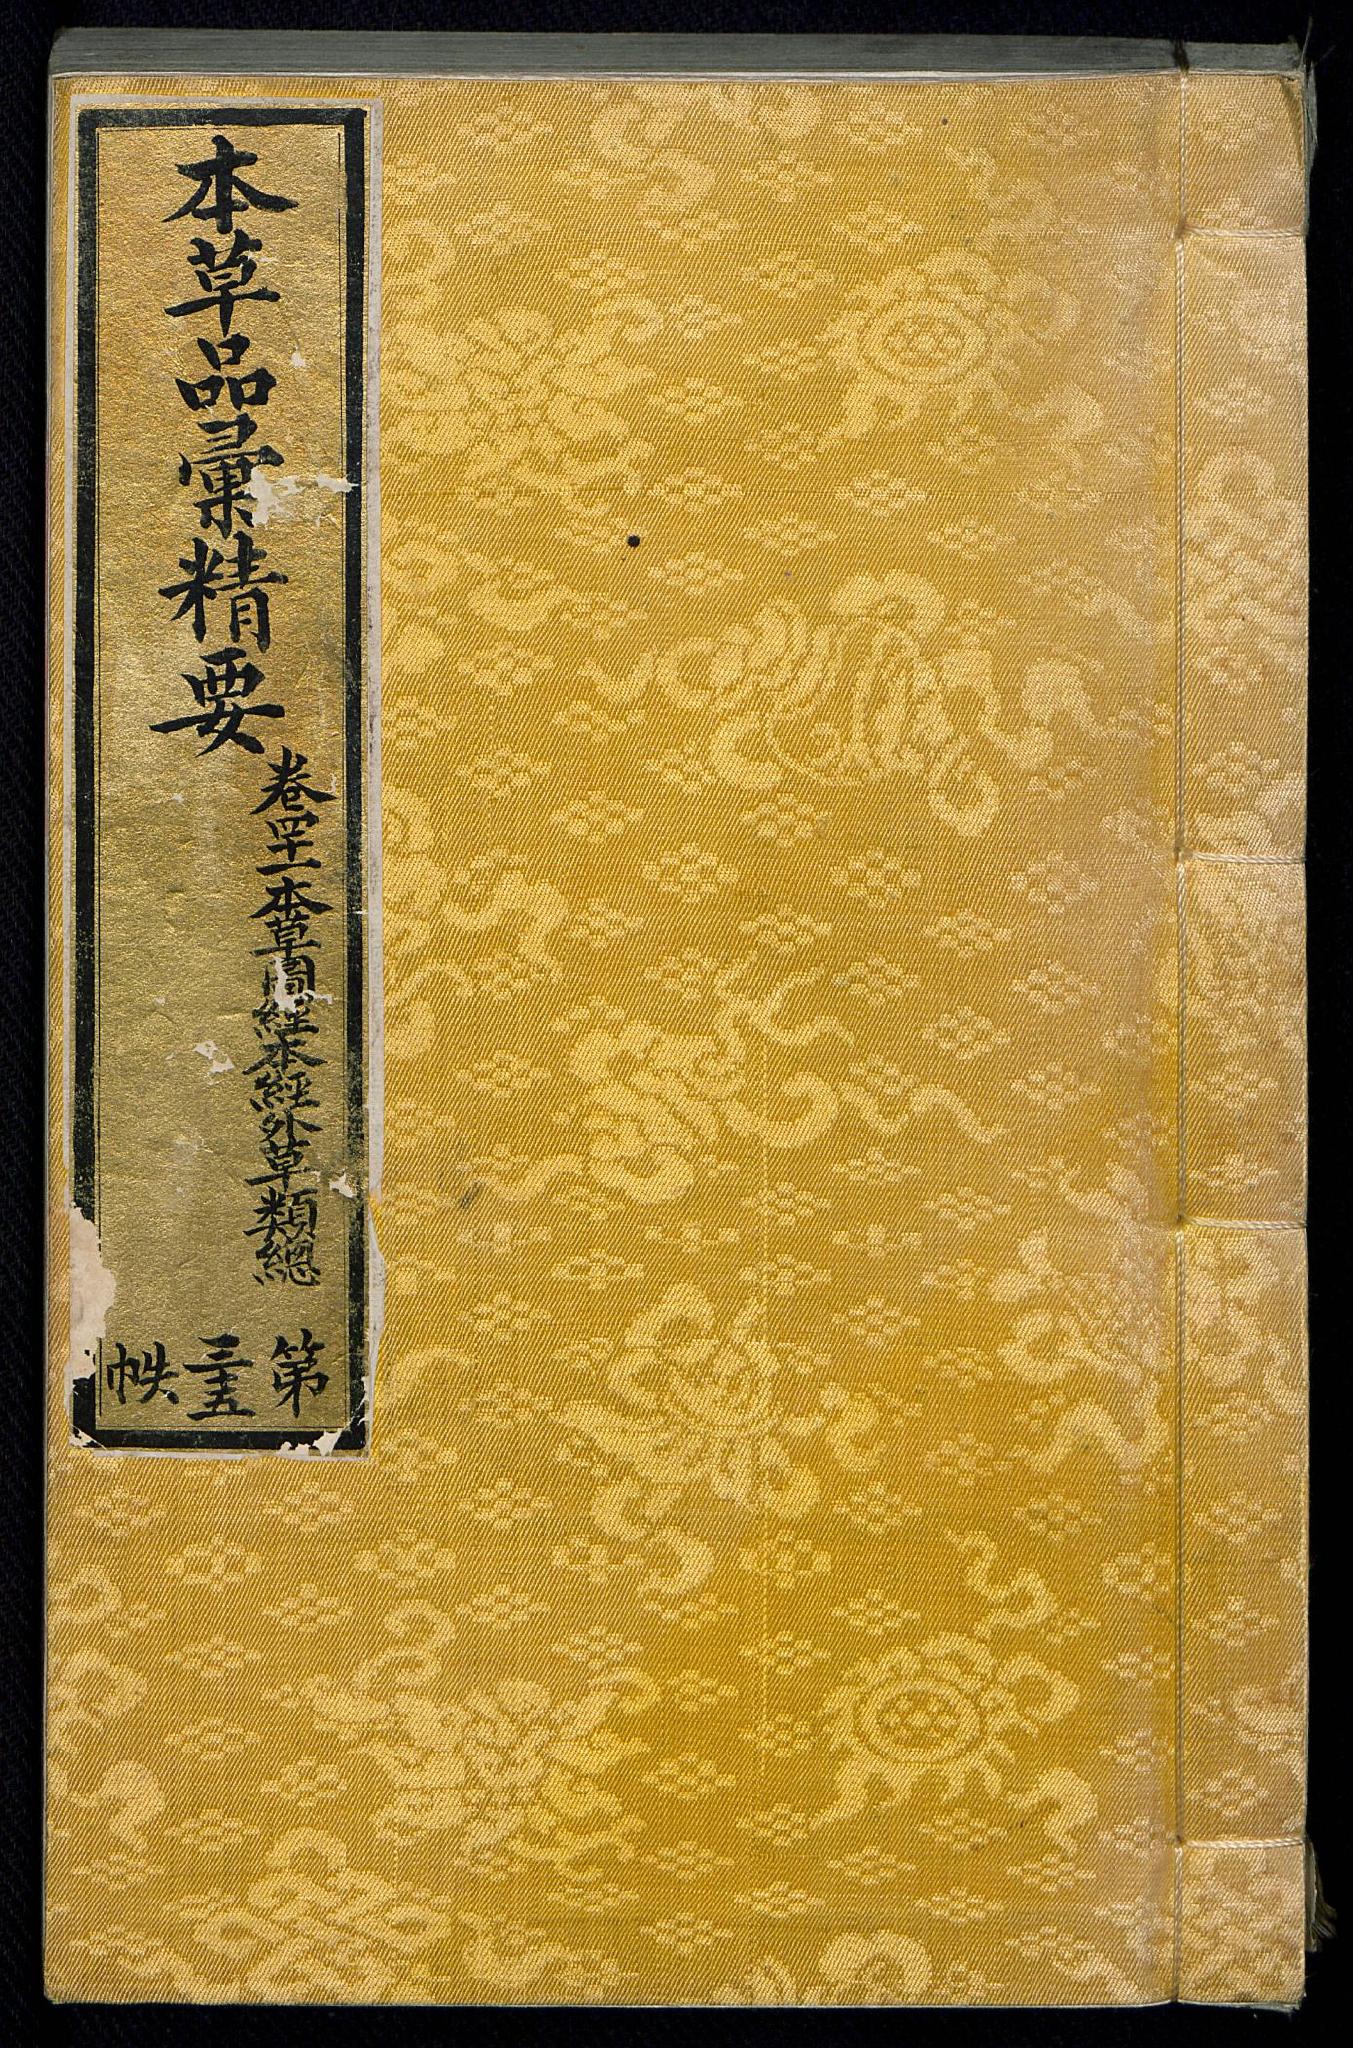 本草品彙精要
卷四十一本草圖經本經外草類總
第三十五帙